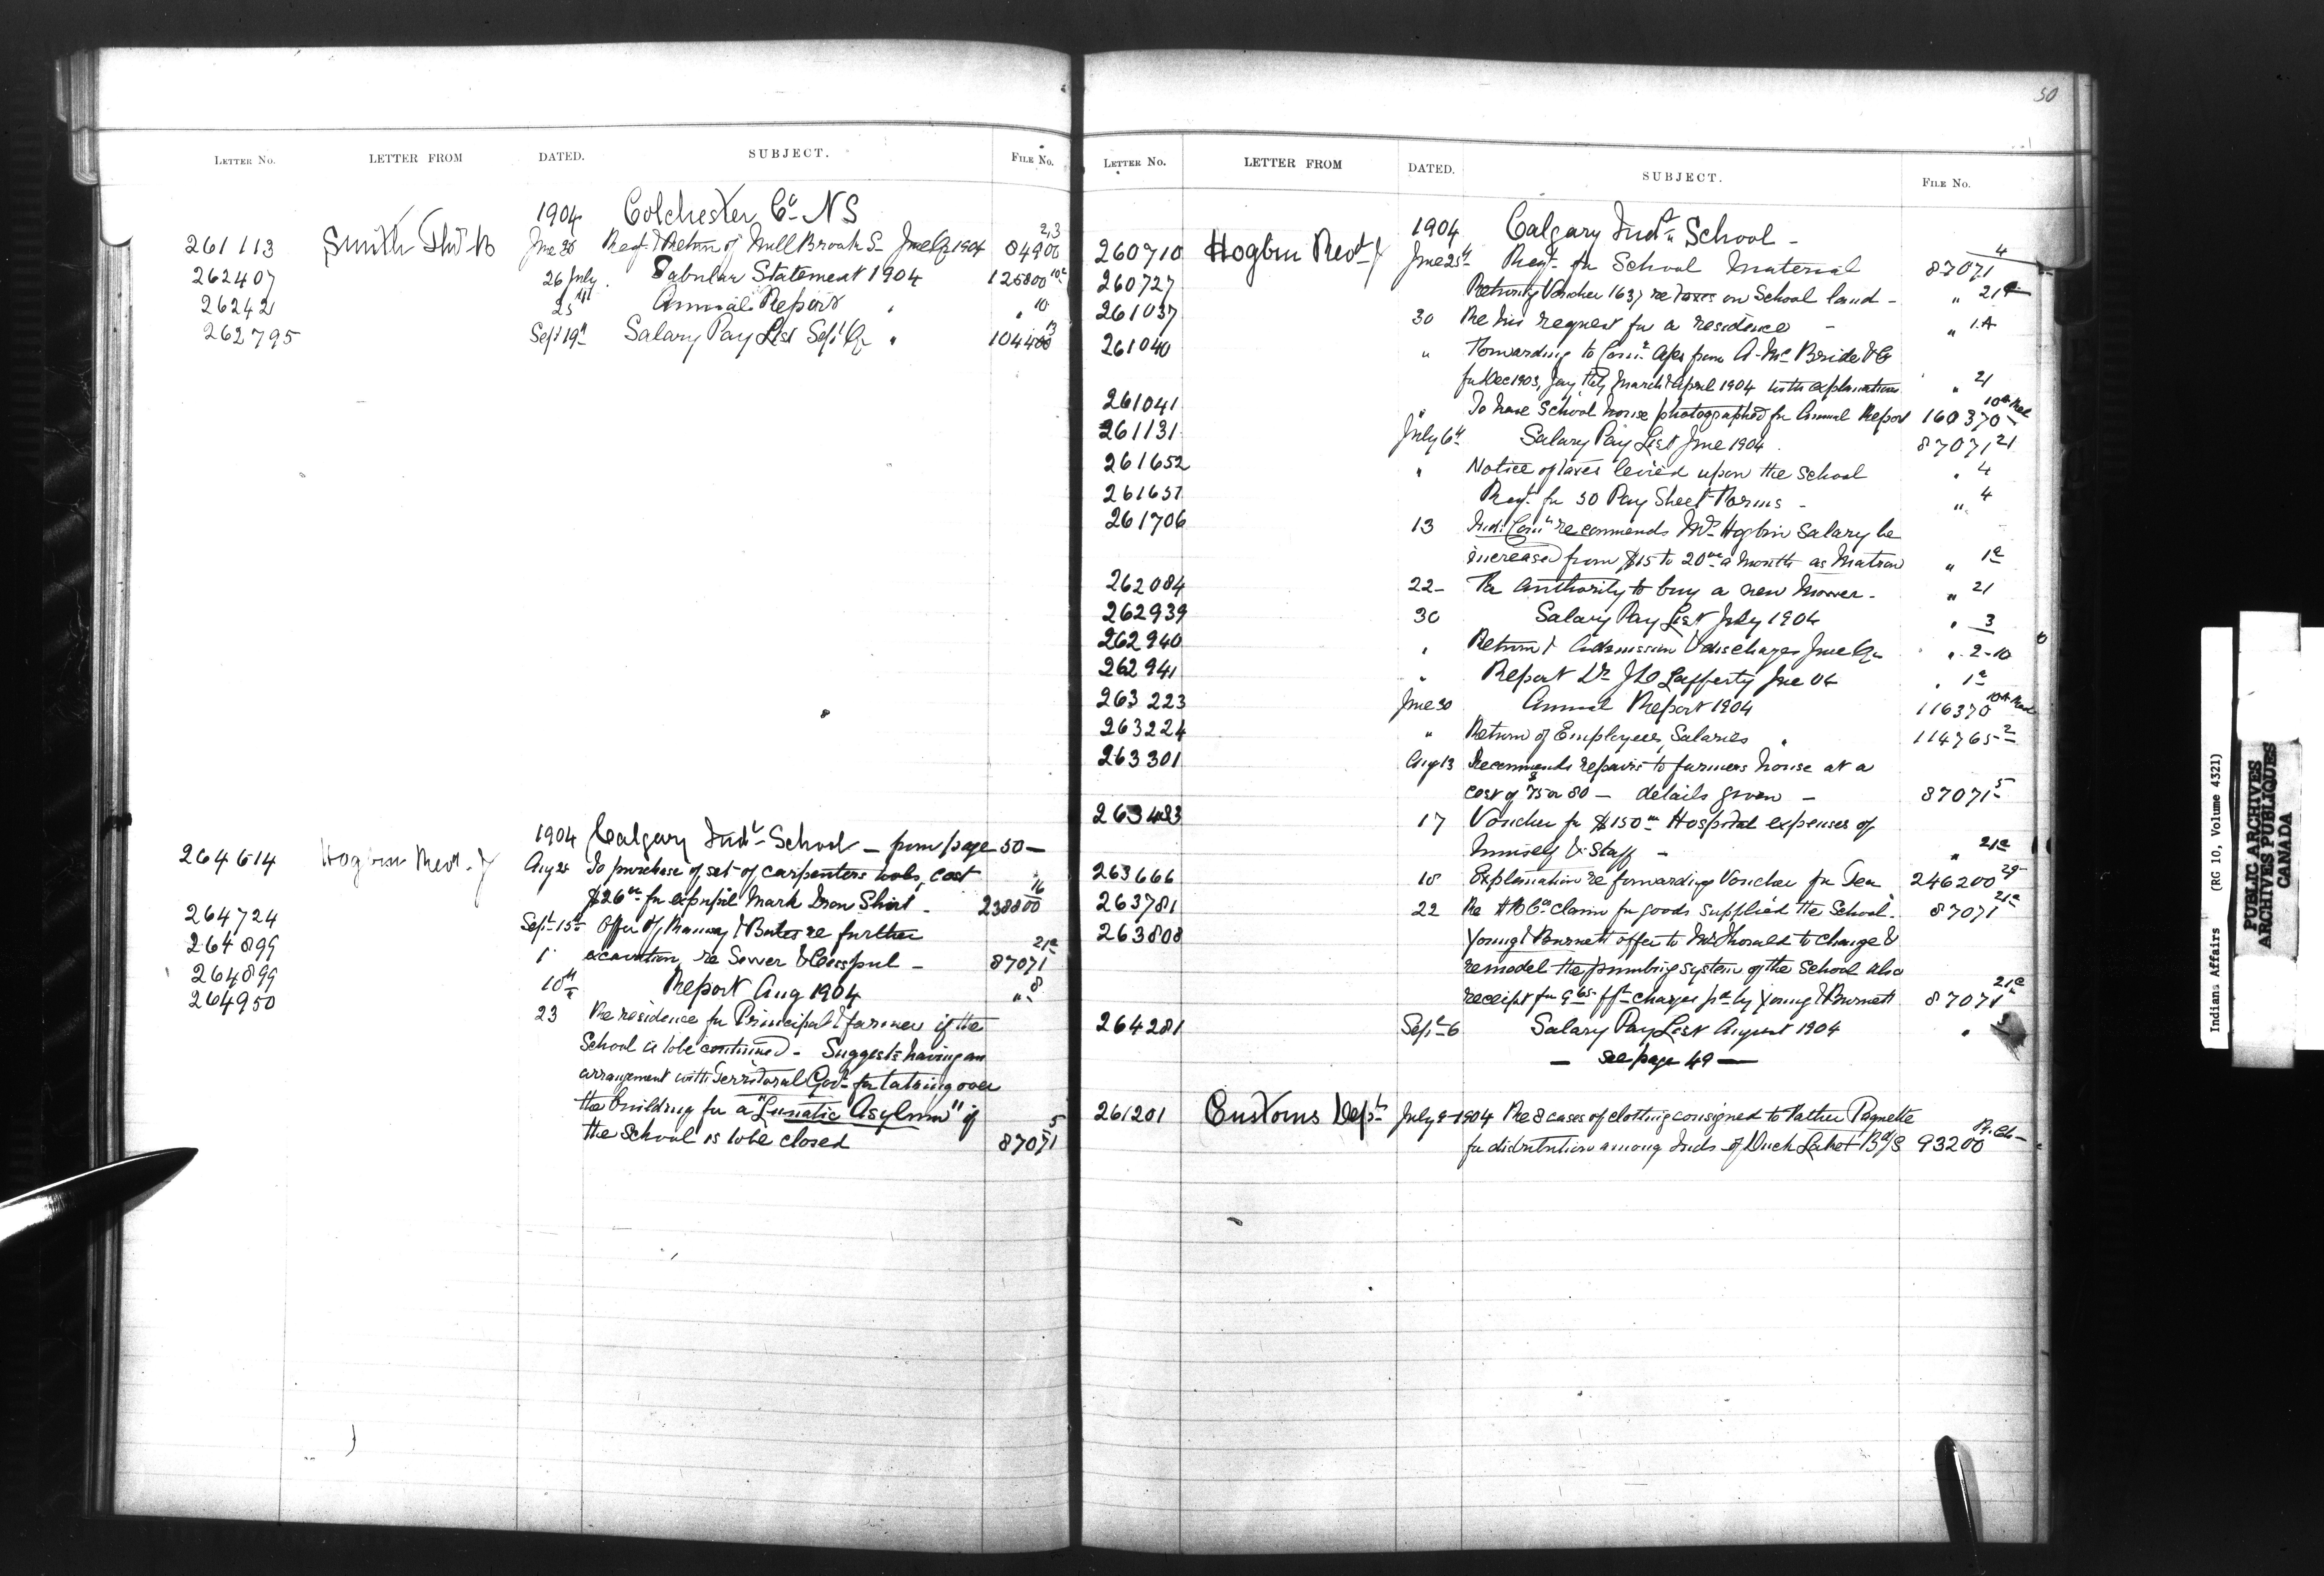 LETTER No. LETTER FROM DATED. SUBJECT. FILE No.
1904 Colchester Co NS
261113 Smith Thos B June 30 Reqt & Return of Mill Brook S- June Qr 1904 84900 2,3
262407 26 July Tabular Statement 1904 125800
26242 25 Annual Report " " 10
262795 Sept 19 Salary Pay List Sept Qr " 104400 13
1904 Calgary Indl School — from page 50 —
264614 Hogbin Revd J Aug 25 To purchase of set of carpenters tools, cost
$26 00 for expupil Mark Iron Shirt - 238800 16
264724 Sept 15th Offer of & Bates re further
264899 1 excavation re Sewer & Cesspool - 87071 21a
264899 10th Report Aug 1904 " 8
264950 23 Re residence for Principal & farmer if the
School is to be continued - Suggests having an
arrangement with Territorial Govt for taking over
the building for a "Lunatic Asylum" if
the School is to be closed 87071 5
50
LETTER No. LETTER FROM DATED. SUBJECT. FILE No.
1904 Calgary Indl School -
260710 Hogbin Revd J June 25th Reqt for School Material 87071 4
260727 Returning Voucher 1637 re taxes on School land - " 21
261037 30 Re his request for a residence - " 1A
261040 " Forwarding to Comr from A. McBride & Co
for Dec 1903, Jany Feby March & April 1904 with explanations " 21
261041 " To have School house photographed for Annual Report 160370
261131 July 6th Salary Pay List June 1904 87071 21
261652 " Notice of taxes levied upon the School " 4
261657 Reqt for 50 Pay Sheet Forms - " 4
261706 13 Ind: Comr recommends Mrs Hogbin Salary be
increased from $15 to 20 00 a month as Matron " 1a
262084 22- For authority to buy a new Mower - " 21
262939 30 Salary Pay List July 1904 " 3
262940 " Return of Admission & discharges June Qr " 2-10
262941 " Report Dr J D Lafferty June 04 " 1a
263223 June 30 Annual Report 1904 116370
263224 " Return of Employees Salaries " 114765-2
263301 Aug 13 Recommends repairs to farmers house at a
cost of $75 or 80 — details given — 87071 5
263483 17 Voucher for $150 00 Hospital expenses of
himself & Staff - " 21a
263666 18 Explanation re forwarding Voucher for Tea 246200 29
263781 22 Re HB Co claim for goods supplied the School - 87071 21a
263808 Young & Burnett offer to Mr to change &
remodel the plumbing system of the School also
receipt for 9 65 frt charges pd by Young & Burnett 87071 21a
264281 Sept 6 Salary Pay List August 1904 "
— see page 49 —
261201 Customs Dept July 8-1904 Re 8 cases of clothing consigned to Father Paquette
for distribution among Inds of Duck Lake & B d/s 93200
Indians Affairs (RG 10, Volume 4321)
PUBLIC ARCHIVES
ARCHIVES PUBLIQUES
CANADA